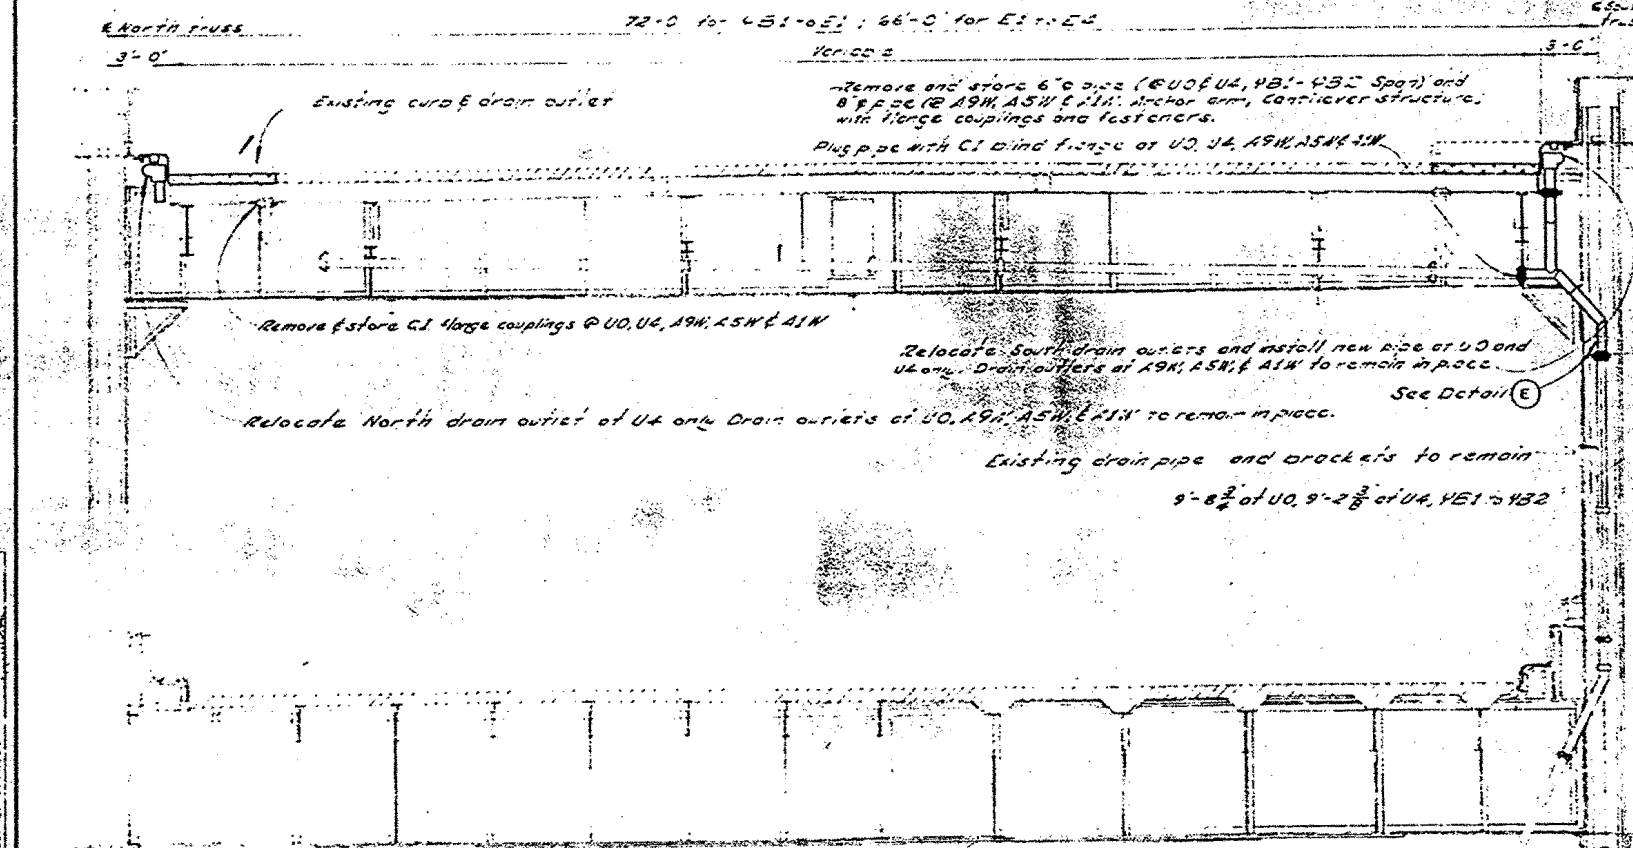 ℄ North truss
72'-0" for YB1 to E1 ; 66'-0" for E1 to E4
3'-0"
Variable
3'-0"
Existing curb & drain outlet
Remove and store 6"φ pipe (@ U0 & U4, YB1-YB2 Span) and
8"φ pipe (@ A9W, A5W & A1W, Anchor arm, Cantilever structure)
with flange couplings and fasteners.
Plug pipe with C.I. blind flange at U0, U4, A9W, A5W & A1W
Remove & store C.I. flange couplings @ U0, U4, A9W, A5W & A1W
Relocate South drain outlets and install new pipe at U0 and
U4 only. Drain outlets at A9W, A5W, & A1W to remain in place.
See Detail E
Relocate North drain outlet at U4 only Drain outlets at U0, A9W, A5W, & A1W to remain in place.
Existing drain pipe and brackets to remain
9'-8 3/4" at U0, 9'-2 3/8" at U4, YB1 to YB2